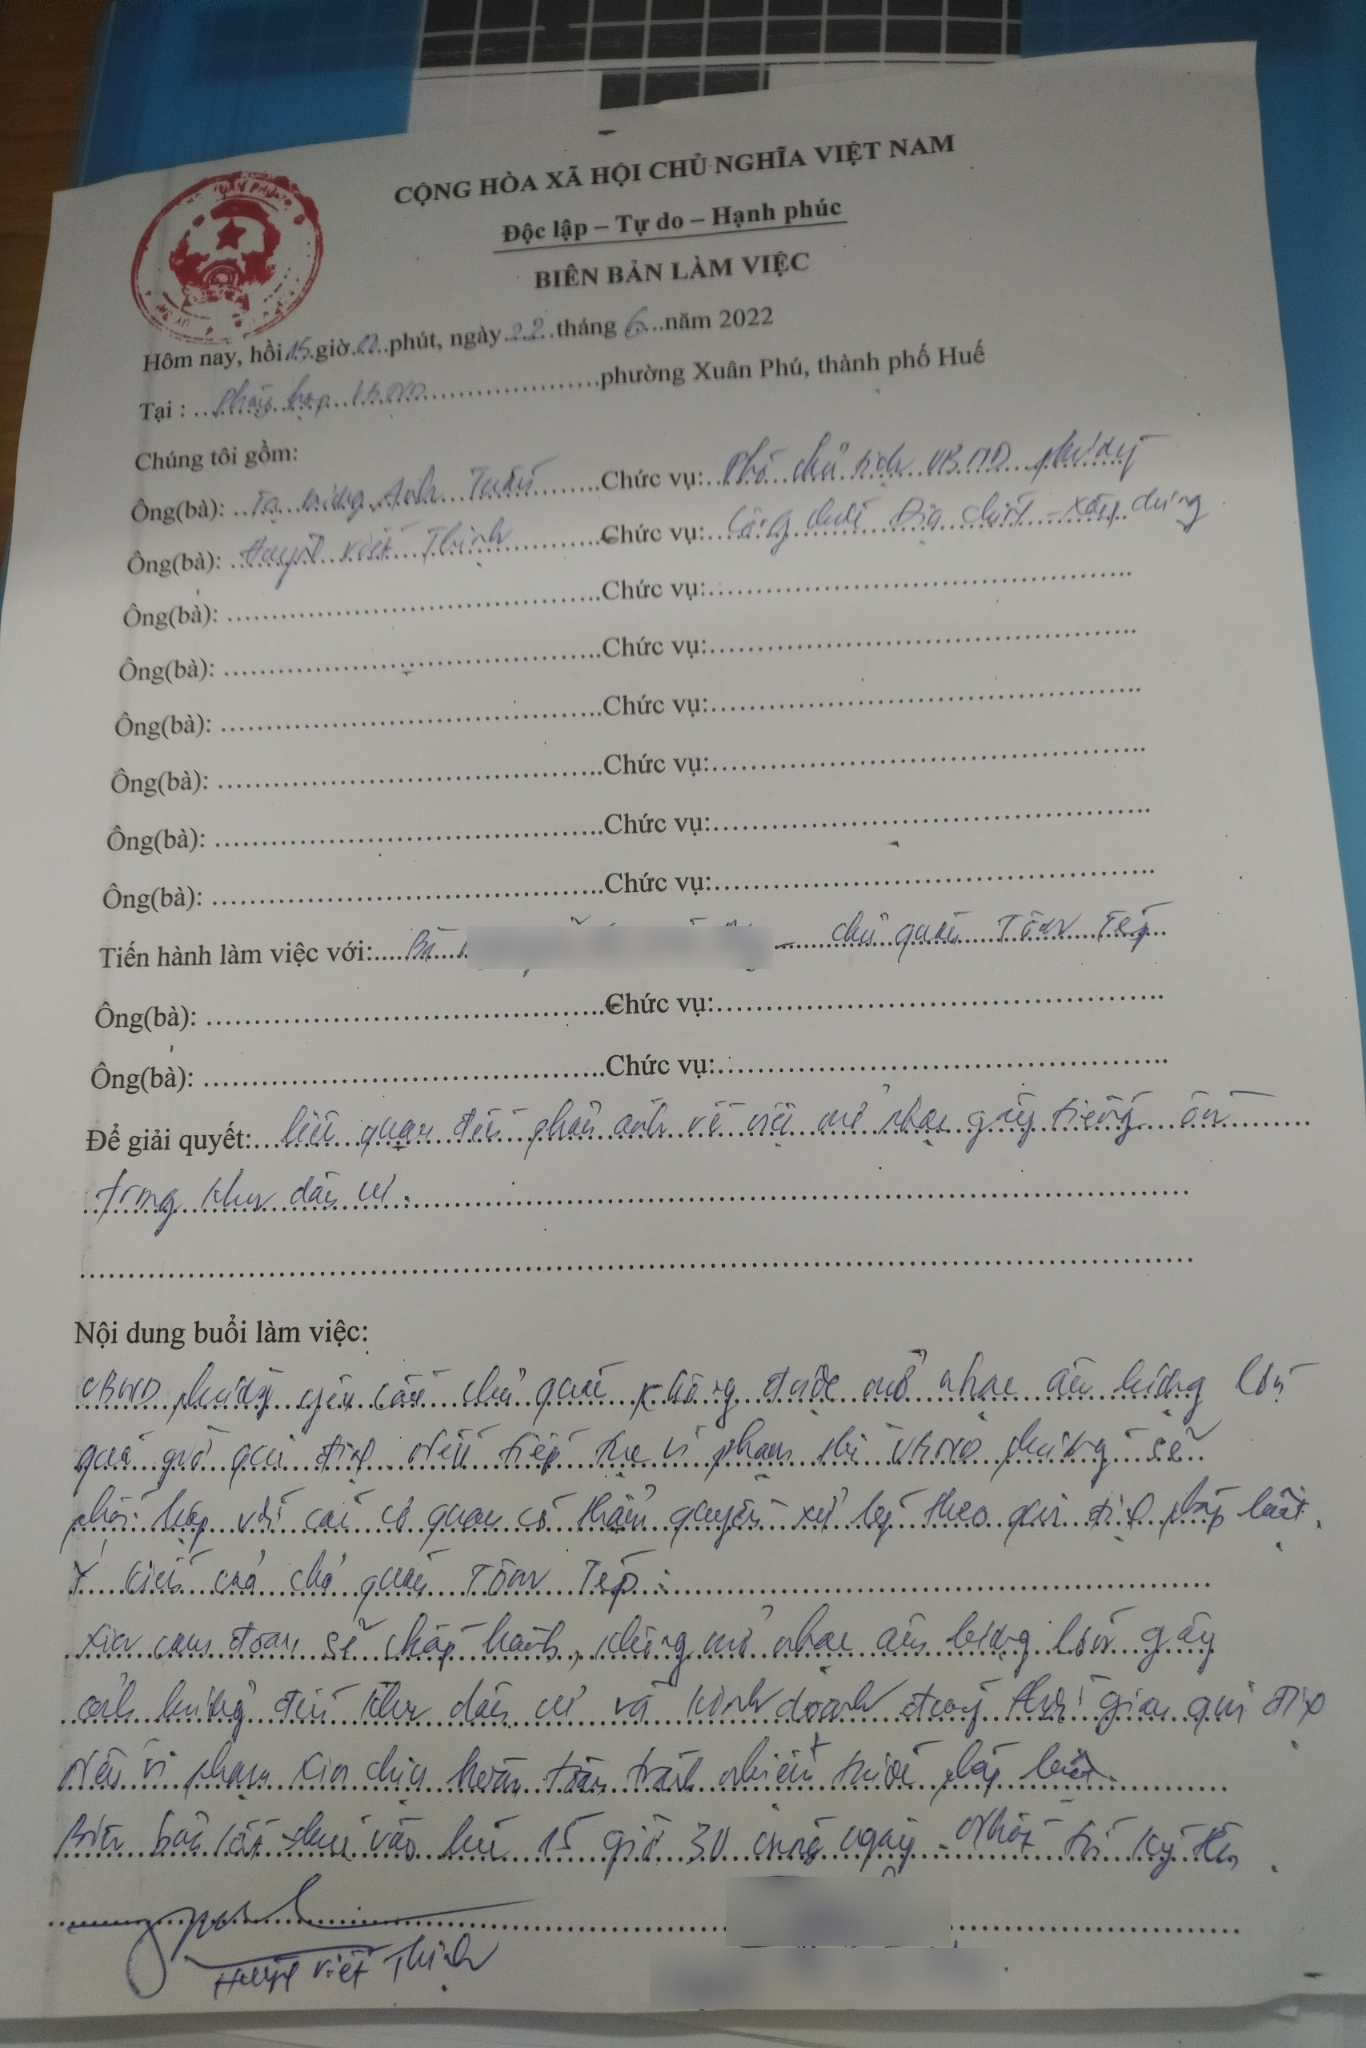 CỘNG HÒA XÃ HỘI CHỦ NGHĨA VIỆT NAM
Độc lập – Tự do – Hạnh phúc
BIÊN BẢN LÀM VIỆC
Hôm nay, hồi 15 giờ 00 phút, ngày 22 tháng 6 năm 2022
Tại : Phòng họp UBND phường Xuân Phú, thành phố Huế
Chúng tôi gồm:
Ông(bà): Anh Tuấn Chức vụ: Phó chủ tịch UBND phường
Ông(bà): Huỳnh Viết Thịnh Chức vụ: Công chức Địa chính - xây dựng
Ông(bà): Chức vụ:
Ông(bà): Chức vụ:
Ông(bà): Chức vụ:
Ông(bà): Chức vụ:
Ông(bà): Chức vụ:
Ông(bà): Chức vụ:
Tiến hành làm việc với: Bà – chủ quán Tôm Tép
Ông(bà): Chức vụ:
Ông(bà): Chức vụ:
Để giải quyết: liên quan đến phản ánh về việc mở nhạc gây tiếng ồn
trong khu dân cư :
Nội dung buổi làm việc:
UBND phường yêu cầu chủ quán không được mở nhạc âm lượng lớn
quá giờ qui định nếu tiếp tục vi phạm thì UBND phường sẽ
phối hợp với các cơ quan có thẩm quyền xử lý theo qui định pháp luật.
Ý kiến của chủ quán Tôm Tép :
Xin cam đoan sẽ chấp hành, không mở nhạc âm lượng lớn gây
ảnh hưởng đến khu dân cư và kinh doanh đúng thời gian qui định
Nếu vi phạm xin chịu hoàn toàn trách nhiệm trước pháp luật.
Biên bản kết thúc vào lúc 15 giờ 30 cùng ngày. Nhất trí ký tên.
Huỳnh Viết Thịnh